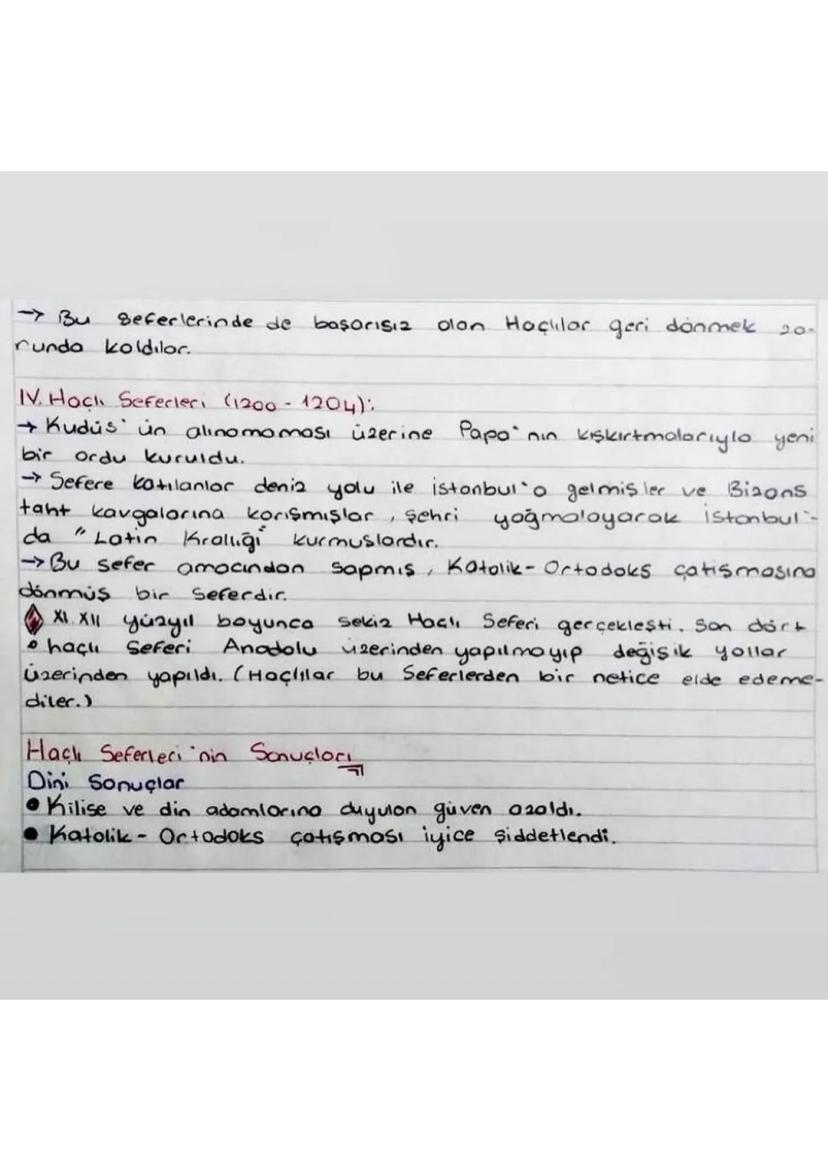 → Bu seferlerinde de başarısız olan Haçlılar geri dönmek zo-
runda kaldılar.
IV. Haçlı Seferleri (1200 - 1204):
→ Kudüs'ün alınamaması üzerine Papa'nın kışkırtmalarıyla yeni
bir ordu kuruldu.
→ Sefere katılanlar deniz yolu ile istanbul'a gelmişler ve Bizans
taht kavgalarına karışmışlar, şehri yağmalayarak istanbul'-
da "Latin Krallığı" kurmuslardır.
→ Bu sefer amacından sapmış, Katolik - Ortodoks çatışmasına
dönmüş bir seferdir.
XI. XII yüzyıl boyunca sekiz Haçlı Seferi gerçekleşti. Son dört
haçlı Seferi Anadolu üzerinden yapılmayıp değişik yollar
üzerinden yapıldı. (Haçlılar bu Seferlerden bir netice elde edeme-
diler.)
Haçlı Seferleri'nin Sonuçları
Dini Sonuçlar
● Kilise ve din adamlarına duyulan güven azaldı.
● Katolik - Ortodoks çatışması iyice şiddetlendi.